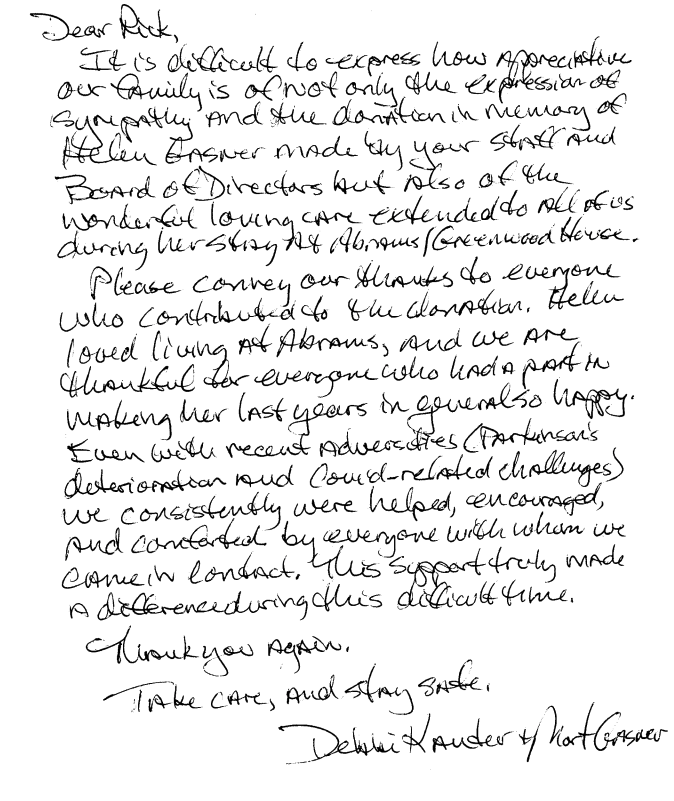 Dear Rick,
It is difficult to express how appreciative
our family is of not only the expression of
sympathy and the donation in memory of
Helen Gasner made by your staff and
Board of Directors but also of the
wonderful loving care extended to all of us
during her stay at Abrams/Greenwood House.
Please convey our thanks to everyone
who contributed to the donation. Helen
loved living at Abrams, and we are
thankful for everyone who had a part in
making her last years in general so happy.
Even with recent adversities (Parkinson's
deterioration and Covid-related challenges)
we consistently were helped, encouraged,
and comforted by everyone with whom we
came in contact. This support truly made
a difference during this difficult time.
Thank you again.
Take care, and stay safe.
Debbi Kauder & Mort Gasner